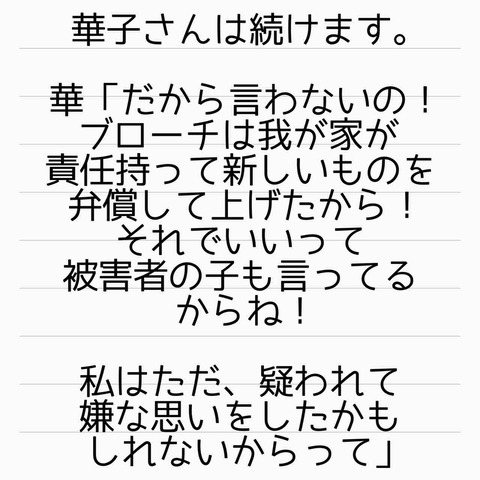 華子さんは続けます。
華「だから言わないの！
ブローチは我が家が
責任持って新しいものを
弁償して上げたから！
それでいいって
被害者の子も言ってる
からね！
私はただ、疑われて
嫌な思いをしたかも
しれないからって」